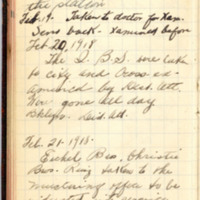 the station
Feb. 19. Taken to doctor for Xam.
Sent back. Xamined before
Feb 20, 1918
The I. B. S. were taken
to city and Cross ex-
amined by Dist. Att.
Were gone all day
Dist. Att.
Feb. 21-1918.
Eichel Bro. Christie
Bro. King taken to the
mustering office to be